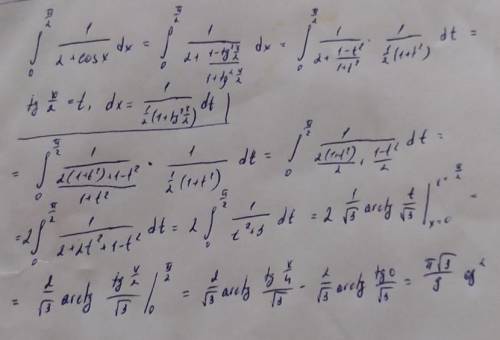 ∫₀^{π/2} 1/(2+cosx) dx = ∫₀^{π/2} 1/(2+ (1-tg²x/2)/(1+tg²x/2)) dx = ∫₀^{π/2} 1/(2+ (1-t²)/(1+t²)) · 1/(½(1+t²)) dt =
tg x/2 = t, dx = 1/(½(1+tg²x/2)) dt
= ∫₀^{π/2} 1/((2(1+t²)+1-t²)/(1+t²)) · 1/(½(1+t²)) dt = ∫₀^{π/2} 1/(2(1+t²)/2 + (1-t²)/2) dt =
= 2∫₀^{π/2} 1/(2+2t²+1-t²) dt = 2∫₀^{π/2} 1/(t²+3) dt = 2 1/√3 arctg t/√3 |_{x=0}^{x=π/2} =
= 2/√3 arctg (tg x/2)/√3 |₀^{π/2} = 2/√3 arctg (tg π/4)/√3 - 2/√3 arctg (tg0)/√3 = π√3/9